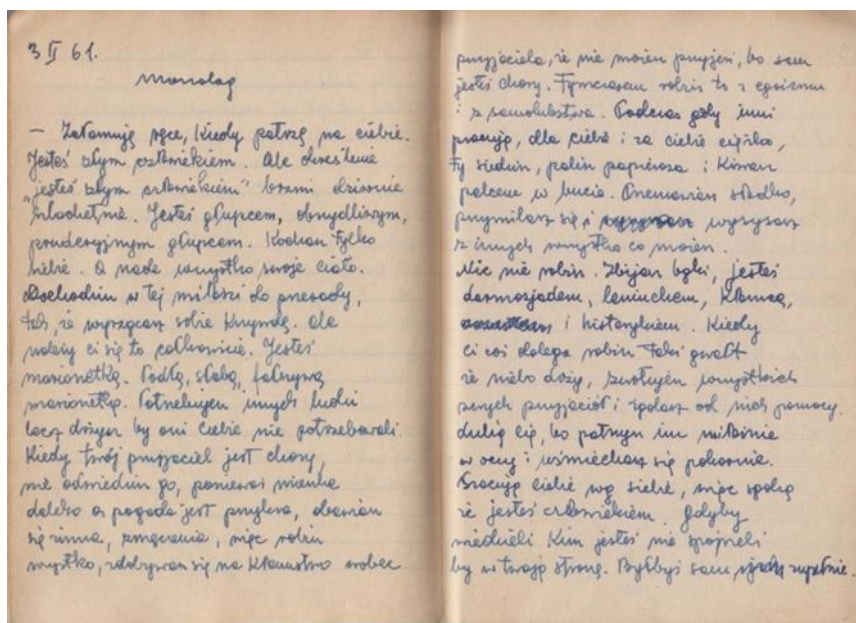 3 II 61.
Monolog
– Załamuję ręce, kiedy patrzę na ciebie.
Jesteś złym człowiekiem. Ale określenie
"jesteś złym człowiekiem" brzmi dziwnie
szlachetnie. Jesteś głupcem, obrzydliwym,
pruderyjnym głupcem. Kochasz tylko
siebie. A nade wszystko swoje ciało.
Dochodzisz w tej miłości do przesady,
tak, że wyrządzasz sobie krzywdę. Ale
należy ci się to całkowicie. Jesteś
marionetką. Podłą, słabą, fałszywą
marionetką. Potrzebujesz innych ludzi
lecz drżysz by oni ciebie nie potrzebowali.
Kiedy twój przyjaciel jest chory,
nie odwiedzisz go, ponieważ mieszka
daleko a pogoda jest przykra, obawiasz
się zimna, zmęczenia, więc robisz
wszystko, zdobywasz się na kłamstwo wobec
przyjaciela, że nie możesz przyjść, bo sam
jesteś chory. Tymczasem robisz to z egoizmu
i z samolubstwa. Podczas gdy inni
pracują, dla ciebie i za ciebie ciężko,
Ty siedzisz, palisz papierosa i kiwasz
palcem w bucie. Przemawiasz słodko,
przymilasz się i wysysasz
z innych wszystko co możesz.
Nic nie robisz. Zbijasz bąki, jesteś
darmozjadem, leniuchem, kłamcą,
i histerykiem. Kiedy
ci coś dolega robisz taki gwałt
że niebo drży, zwołujesz wszystkich
swych przyjaciół i żądasz od nich pomocy.
Lubią cię, bo patrzysz im miłośnie
w oczy i uśmiechasz się pokornie.
Pracują ciebie wg siebie, więc sądzą
że jesteś człowiekiem. Gdyby
wiedzieli kim jesteś nie spojrzeli
by w twoją stronę. Byłbyś sam, zupełnie.